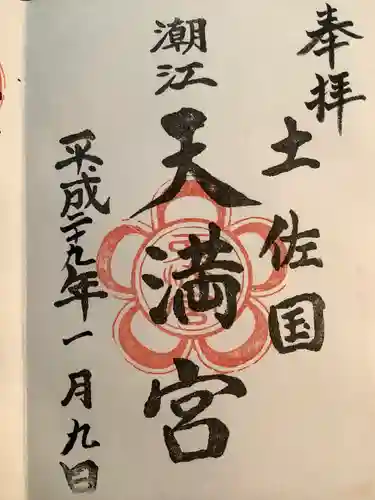 奉拝
土佐国
潮江
天満宮
平成二十九年一月九日